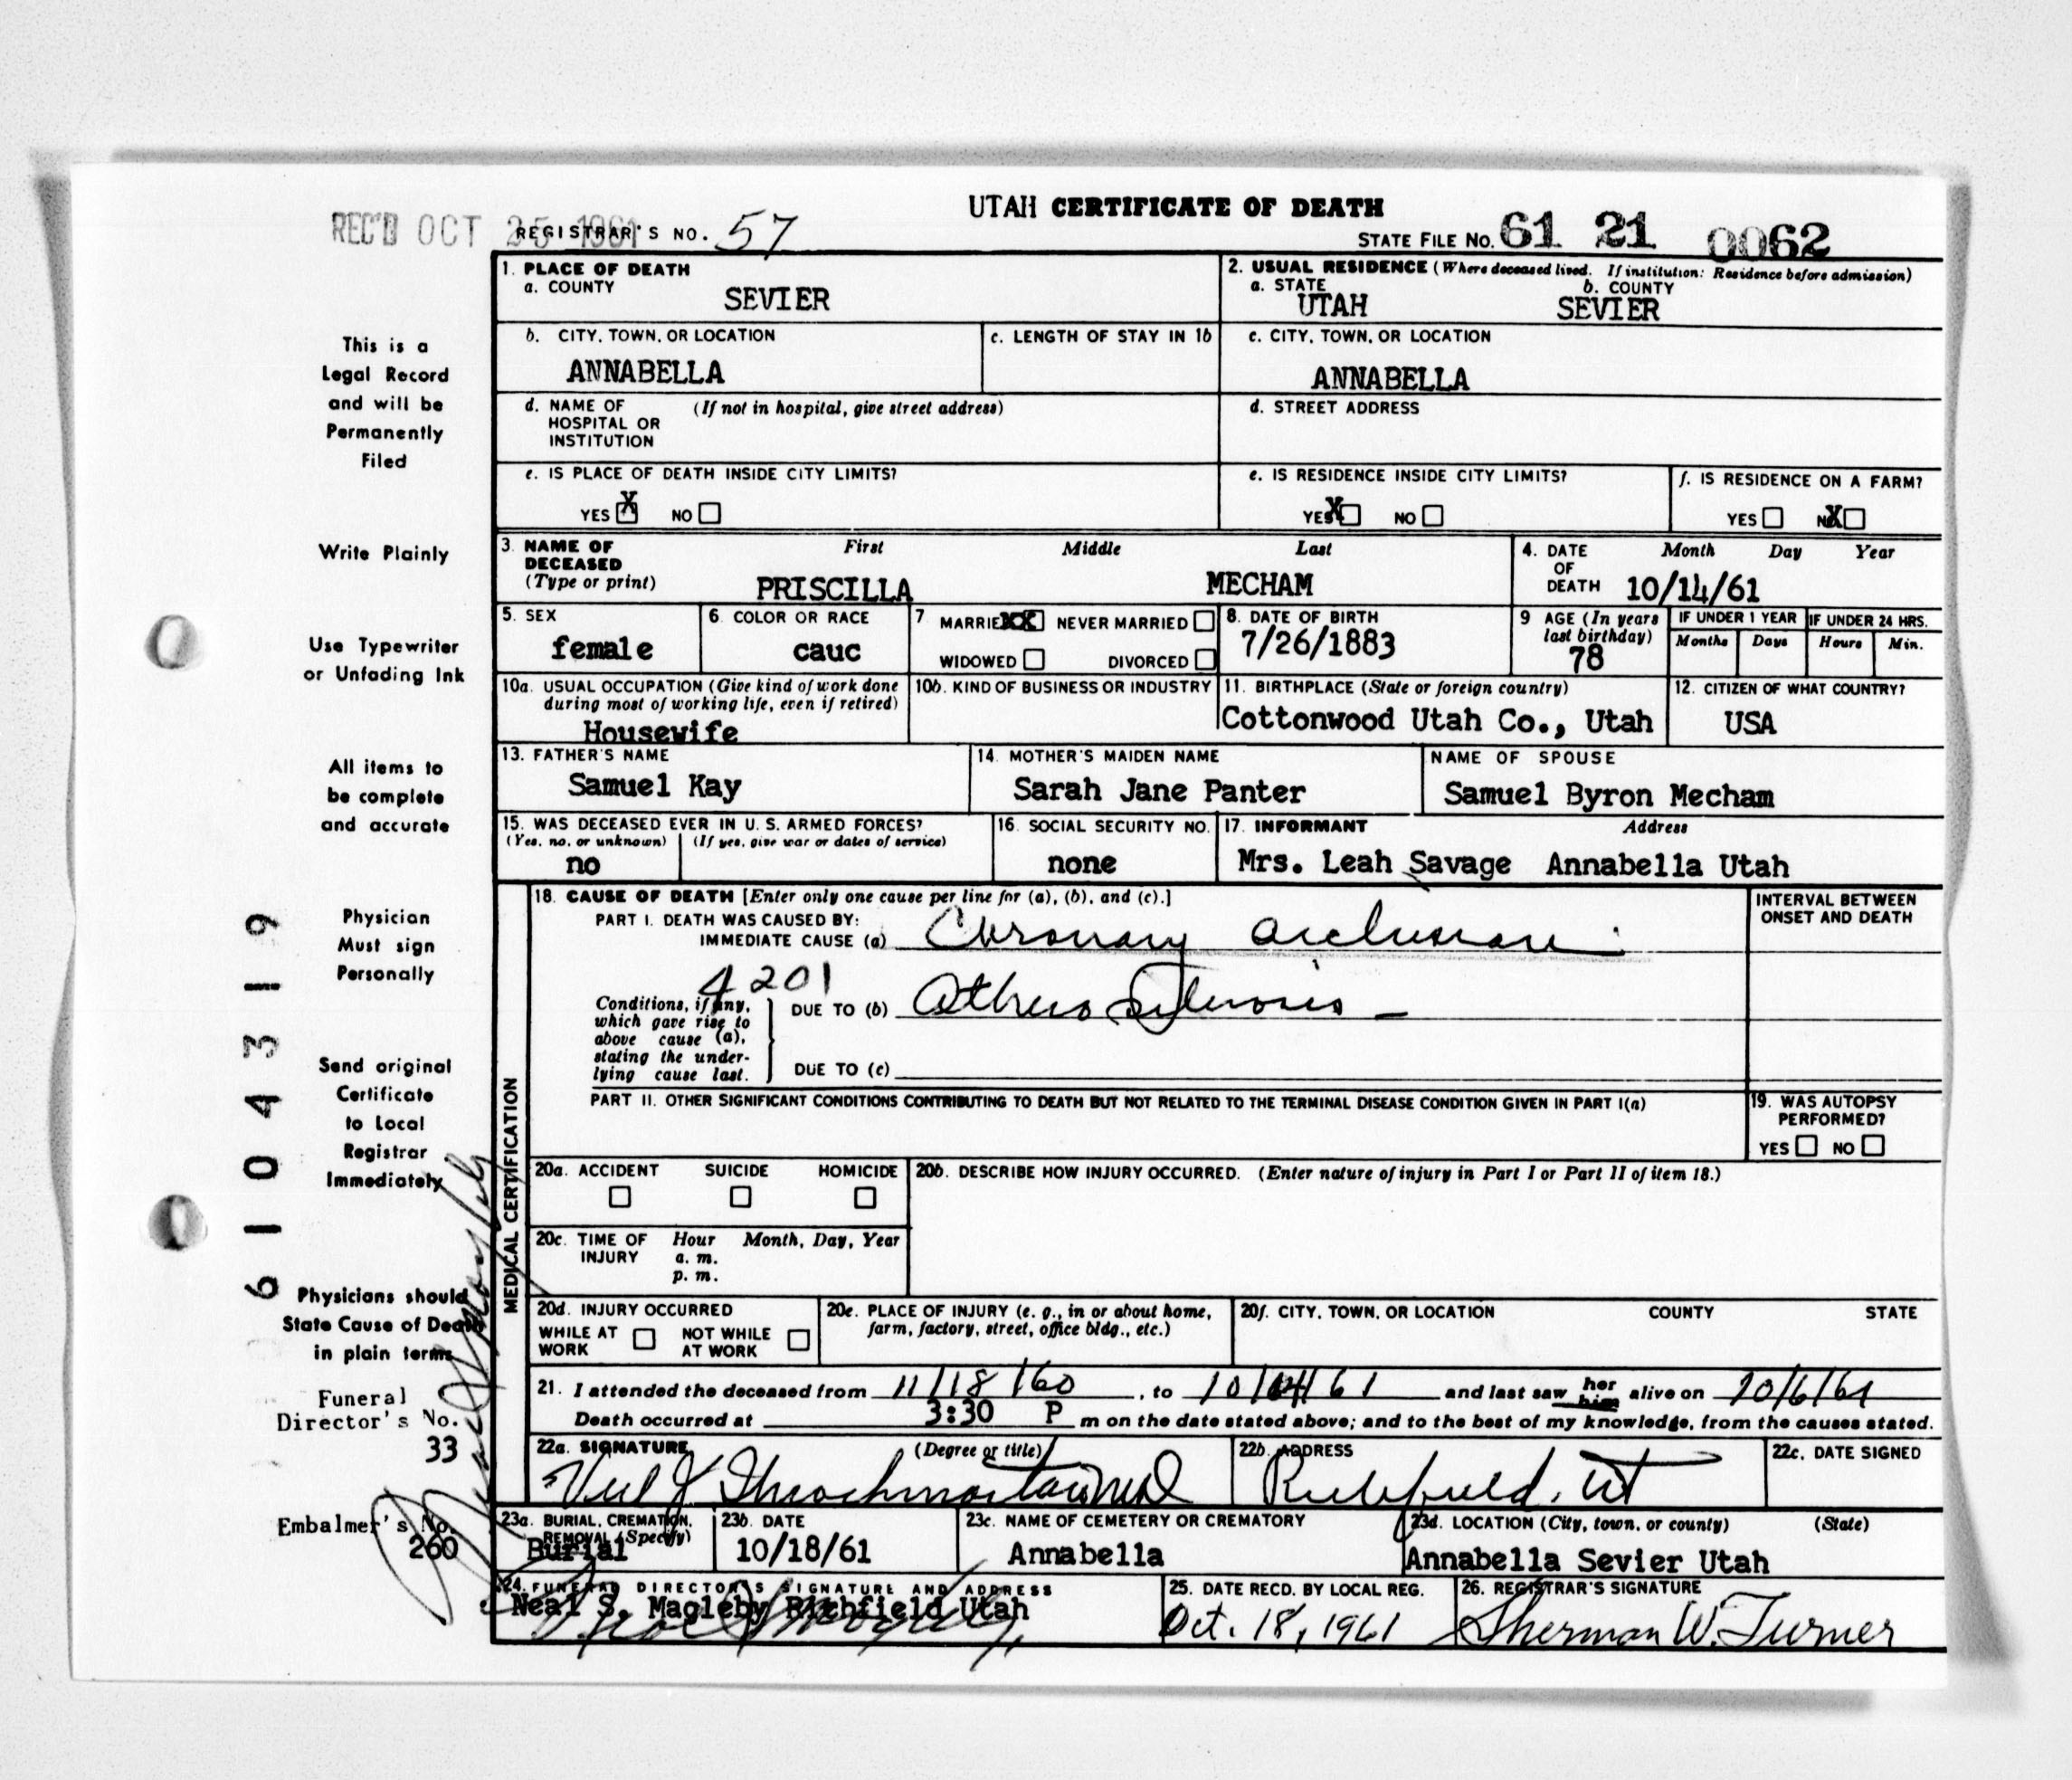 UTAH CERTIFICATE OF DEATH
REC'D OCT 25 1961 REGISTRAR'S NO. 57
STATE FILE No. 61 21 0062
1. PLACE OF DEATH
a. COUNTY
SEVIER
2. USUAL RESIDENCE (Where deceased lived. If institution: Residence before admission)
a. STATE b. COUNTY
UTAH SEVIER
b. CITY, TOWN, OR LOCATION
ANNABELLA
c. LENGTH OF STAY IN 1b
c. CITY, TOWN, OR LOCATION
ANNABELLA
d. NAME OF (If not in hospital, give street address)
HOSPITAL OR
INSTITUTION
d. STREET ADDRESS
e. IS PLACE OF DEATH INSIDE CITY LIMITS?
YES X NO
e. IS RESIDENCE INSIDE CITY LIMITS?
YES X NO
f. IS RESIDENCE ON A FARM?
YES NO X
3. NAME OF First Middle Last
DECEASED
(Type or print) PRISCILLA MECHAM
4. DATE Month Day Year
OF
DEATH 10/14/61
5. SEX
female
6. COLOR OR RACE
cauc
7 MARRIED XX NEVER MARRIED
WIDOWED DIVORCED
8. DATE OF BIRTH
7/26/1883
9 AGE (In years
last birthday)
78
IF UNDER 1 YEAR IF UNDER 24 HRS.
Months Days Hours Min.
10a. USUAL OCCUPATION (Give kind of work done
during most of working life, even if retired)
Housewife
10b. KIND OF BUSINESS OR INDUSTRY
11. BIRTHPLACE (State or foreign country)
Cottonwood Utah Co., Utah
12. CITIZEN OF WHAT COUNTRY?
USA
13. FATHER'S NAME
Samuel Kay
14. MOTHER'S MAIDEN NAME
Sarah Jane Panter
NAME OF SPOUSE
Samuel Byron Mecham
15. WAS DECEASED EVER IN U. S. ARMED FORCES?
(Yes, no, or unknown) (If yes, give war or dates of service)
no
16. SOCIAL SECURITY NO.
none
17. INFORMANT Address
Mrs. Leah Savage Annabella Utah
MEDICAL CERTIFICATION
18. CAUSE OF DEATH [Enter only one cause per line for (a), (b), and (c).]
PART I. DEATH WAS CAUSED BY:
IMMEDIATE CAUSE (a) Coronary occlusion
INTERVAL BETWEEN
ONSET AND DEATH
4201
Conditions, if any,
which gave rise to
above cause (a),
stating the under-
lying cause last.
DUE TO (b) Atherosclerosis
DUE TO (c)
PART II. OTHER SIGNIFICANT CONDITIONS CONTRIBUTING TO DEATH BUT NOT RELATED TO THE TERMINAL DISEASE CONDITION GIVEN IN PART I(a)
19. WAS AUTOPSY
PERFORMED?
YES NO
20a. ACCIDENT SUICIDE HOMICIDE
20b. DESCRIBE HOW INJURY OCCURRED. (Enter nature of injury in Part I or Part II of item 18.)
20c. TIME OF Hour Month, Day, Year
INJURY a. m.
p. m.
20d. INJURY OCCURRED
WHILE AT NOT WHILE
WORK AT WORK
20e. PLACE OF INJURY (e. g., in or about home,
farm, factory, street, office bldg., etc.)
20f. CITY, TOWN, OR LOCATION COUNTY STATE
21. I attended the deceased from 11/18/60, to 10/14/61 and last saw her him alive on 10/6/61
Death occurred at 3:30 P m on the date stated above; and to the best of my knowledge, from the causes stated.
22a. SIGNATURE (Degree or title)
22b. ADDRESS
Richfield, Ut
22c. DATE SIGNED
23a. BURIAL, CREMATION,
REMOVAL (Specify)
Burial
23b. DATE
10/18/61
23c. NAME OF CEMETERY OR CREMATORY
Annabella
23d. LOCATION (City, town, or county) (State)
Annabella Sevier Utah
24. FUNERAL DIRECTOR'S SIGNATURE AND ADDRESS
Neal S. Magleby Richfield Utah
25. DATE RECD. BY LOCAL REG.
Oct. 18, 1961
26. REGISTRAR'S SIGNATURE
Sherman W. Turner
This is a
Legal Record
and will be
Permanently
Filed
Write Plainly
Use Typewriter
or Unfading Ink
All items to
be complete
and accurate
Physician
Must sign
Personally
Send original
Certificate
to Local
Registrar
Immediately
Physicians should
State Cause of Death
in plain terms
Funeral
Director's No.
33
Embalmer's No.
260
Neal S Magleby
61 04319